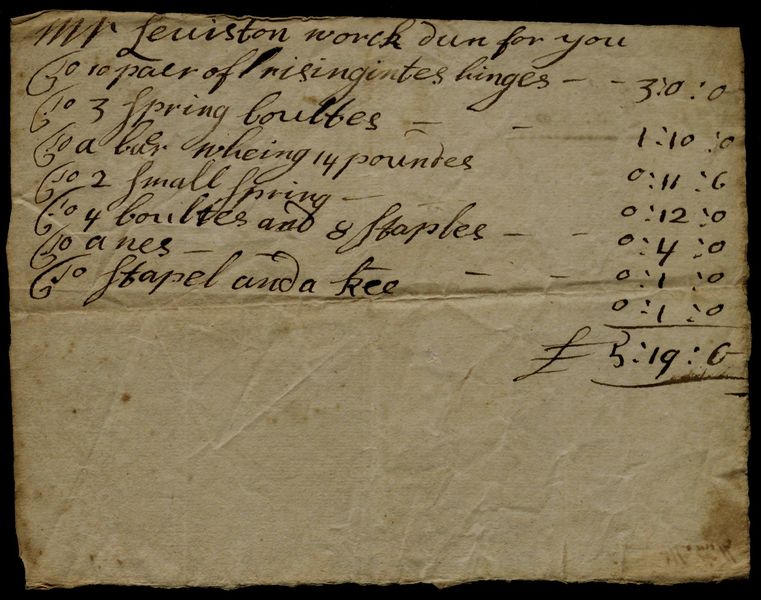 Mr Leuiston worck dun for you
To 10 paer of risingintes hinges - - 3:0:0
To 3 Spring boultes - - 1:10:0
To a bar wheing 14 poundes 0:11:6
To 2 Small Spring - 0:12:0
To 4 boultes and 8 Staples - - 0:4:0
To a nes - - - 0:1:0
To Stapel and a kee 0:1:0
£ 5:19:6